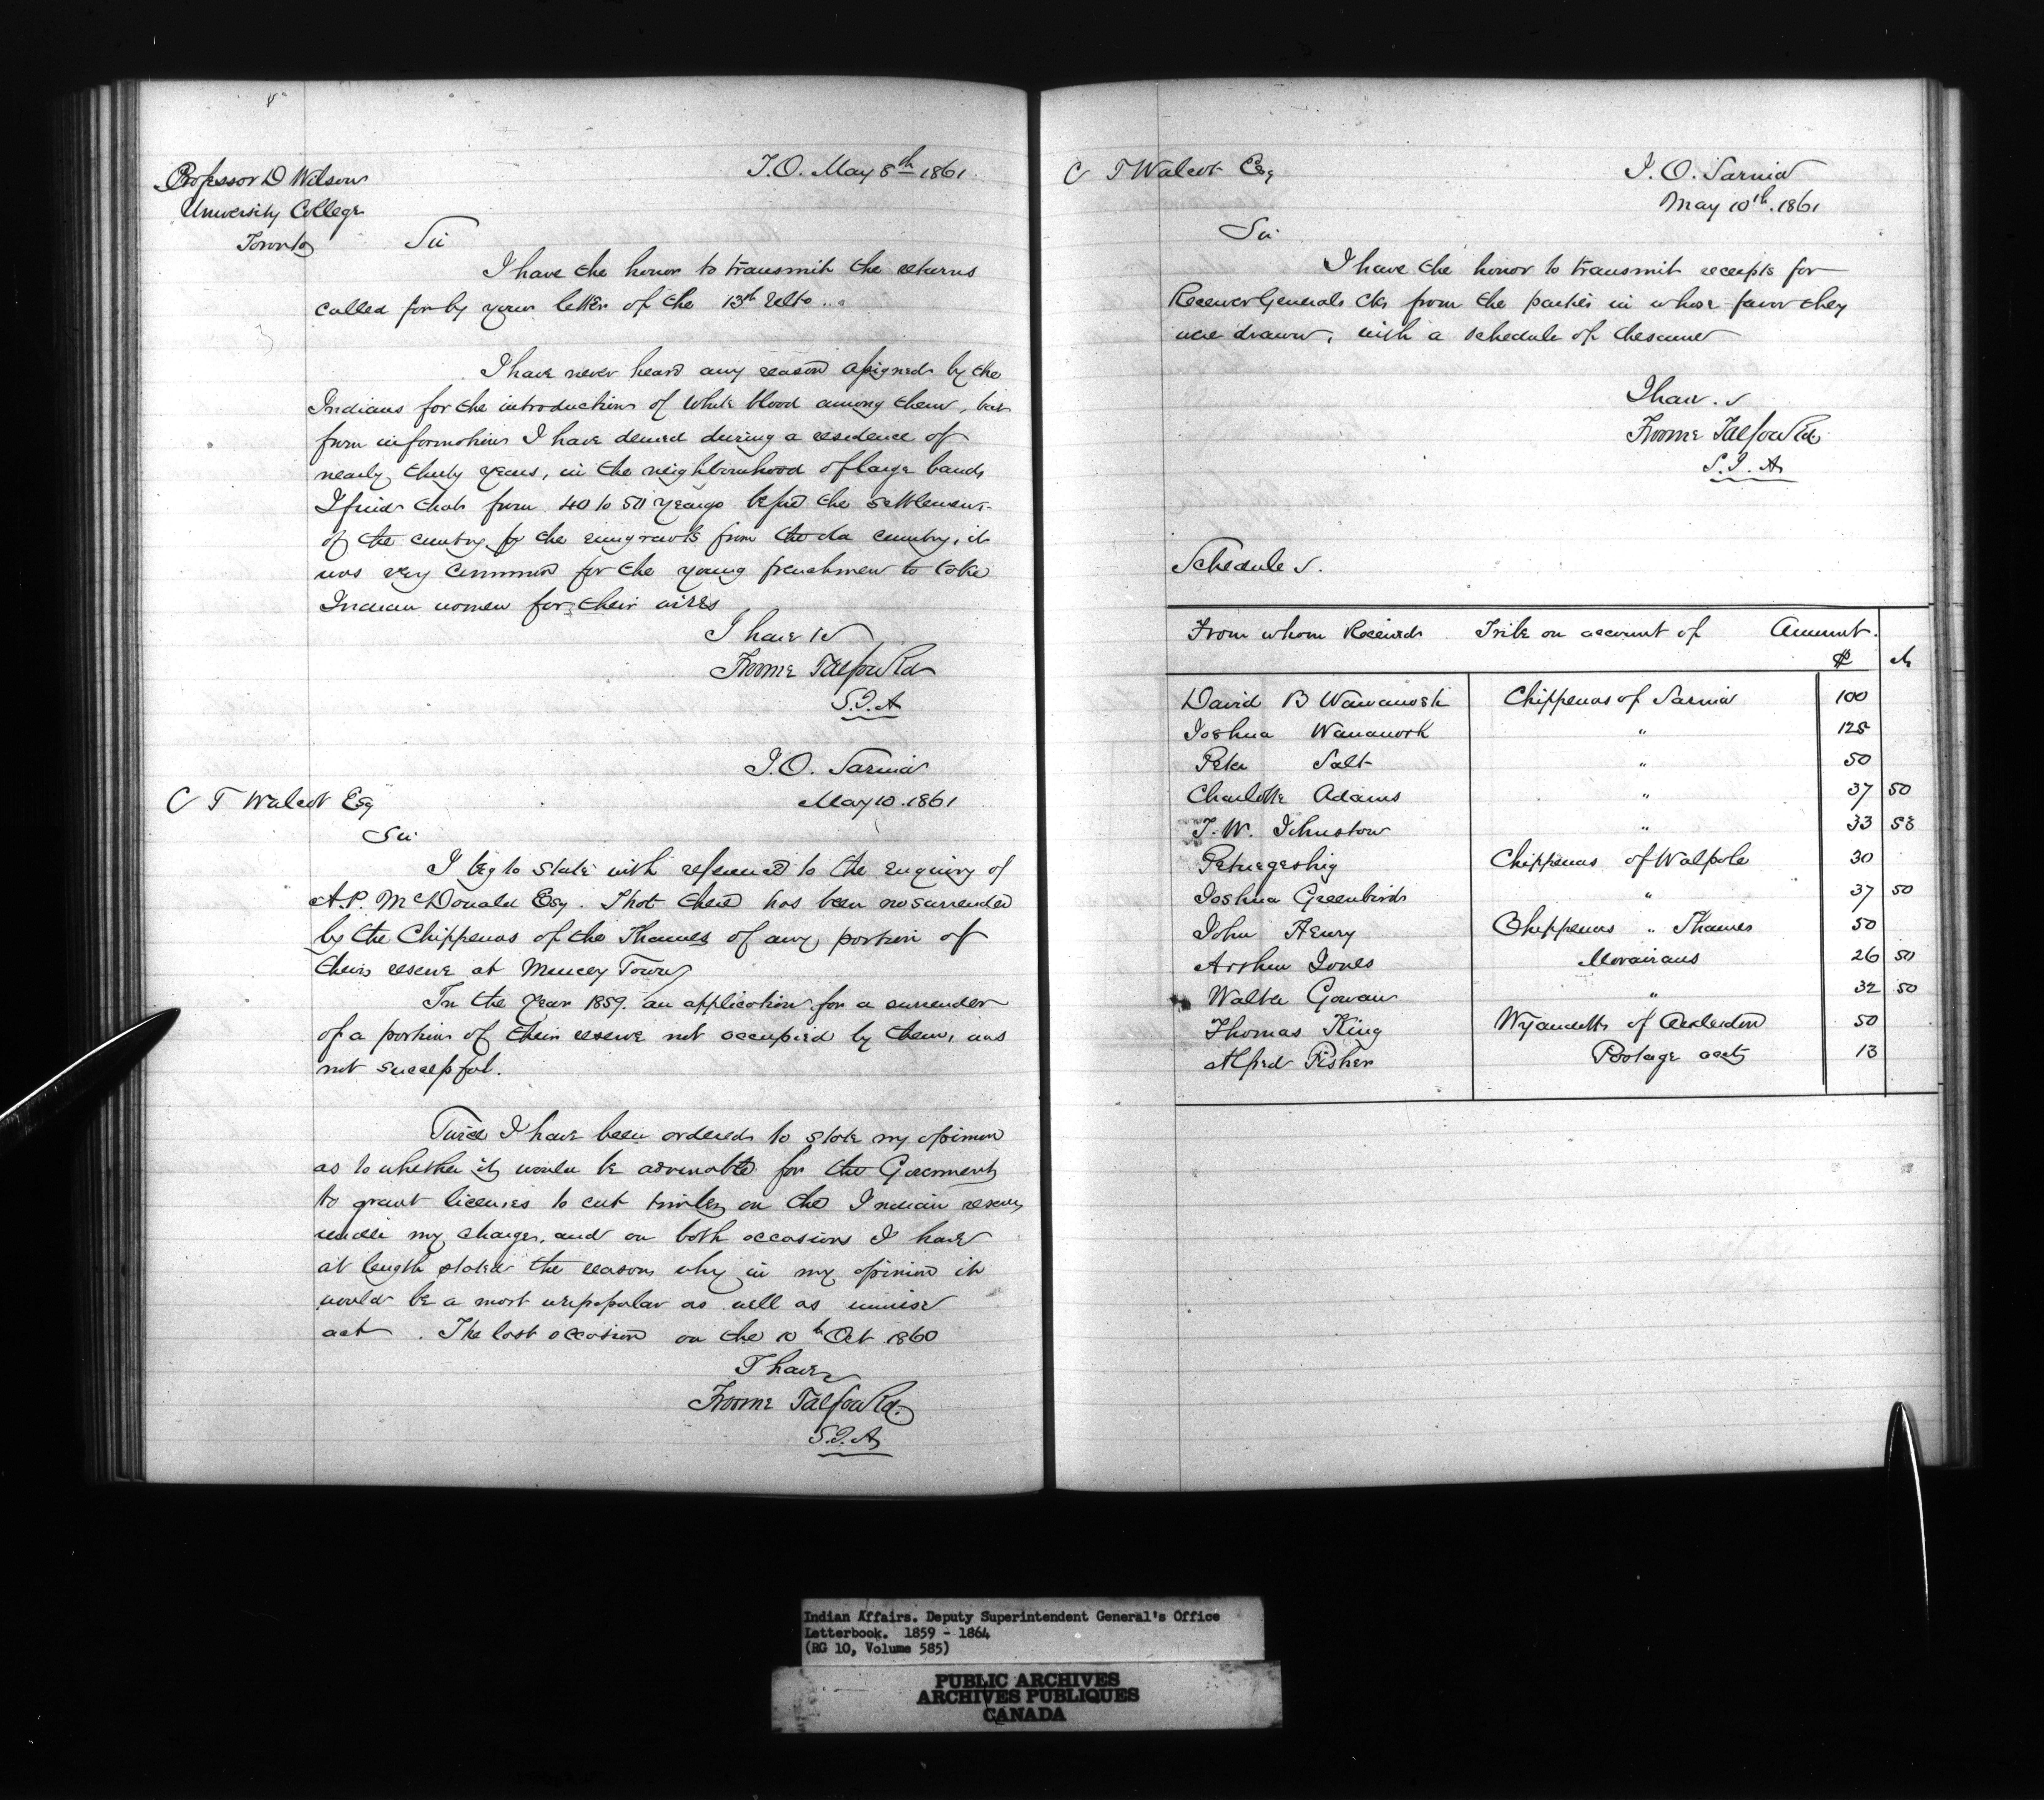 Professor D Wilson
University College
Toronto
I.O. May 8th 1861
Sir
I have the honor to transmit the returns
called for by your letter of the 13th Ulto..
I have never heard any reason assigned by the
Indians for the introduction of White blood among them, but
from information I have derived during a residence of
nearly thirty years, in the neighbourhood of large bands
I find that from 40 to 50 years ago before the settlement
of the country by the emigrants from the old country, it
was very common for the young frenchmen to take
Indian women for their wives
I have &c
Froome Talfourd
S.I.A
I.O. Sarnia
May 10. 1861
C T Walcot Esq
Sir
I beg to state with reference to the enquiry of
A.P. McDonald Esq. That there has been no surrender
by the Chippewas of the Thames of any portion of
their reserve at Muncey Town
In the Year 1859. an application for a surrender
of a portion of their reserve not occupied by them, was
not successful.
Twice I have been ordered to state my opinion
as to whether it would be advisable for the Goverment
to grant licenses to cut timber on the Indian reserves
under my charge, and on both occasions I have
at length stated the reasons why in my opinion it
would be a most unpopular as well as unwise
act. The last occasion on the 10th Oct 1860
I have
Froome Talfourd.
S.I.A
C T Walcot Esq
I.O. Sarnia
May 10th. 1861
Sir
I have the honor to transmit receipts for
Receiver Generals Cks from the parties in whose favor they
were drawn, with a schedule of the same
I have.
Froome Talfourd
S.I.A
Schedule
From whom Received Tribe on account of Amount.
$ cts
David B Wawanosh Chippewas of Sarnia 100
Joshua Wawanosh " 125
Peter Salt " 50
Charlotte Adams " 37 50
T.W. Johnston " 33 58
Petwegeshig Chippewas of Walpole 30
Joshua Greenbird " 37 50
John Henry Chippewas " Thames 50
Arthur Jones Moravians 26 50
Walter Gowan " 32 50
Thomas King Wyandotts of Anderdon 50
Alfred Fisher Postage acct 13
Indian Affairs. Deputy Superintendent General's Office
Letterbook. 1859 - 1864
(RG 10, Volume 585)
PUBLIC ARCHIVES
ARCHIVES PUBLIQUES
CANADA